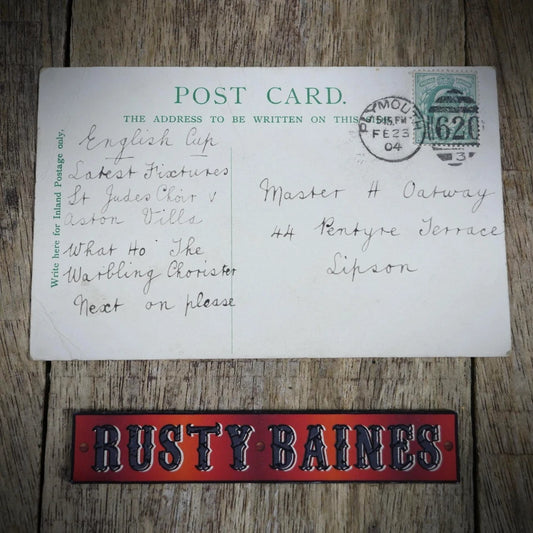 POST CARD.
THE ADDRESS TO BE WRITTEN ON THIS
Write here for Inland Postage only.
English Cup
Latest Fixtures
St Judes Choir v
Aston Villa
What Ho' The
Warbling Chorister
Next on please
PLYMOUTH
5 15 PM
FE 23
04
620
3
Master H Oatway
44 Pentyre Terrace
Lipson
RUSTY BAINES